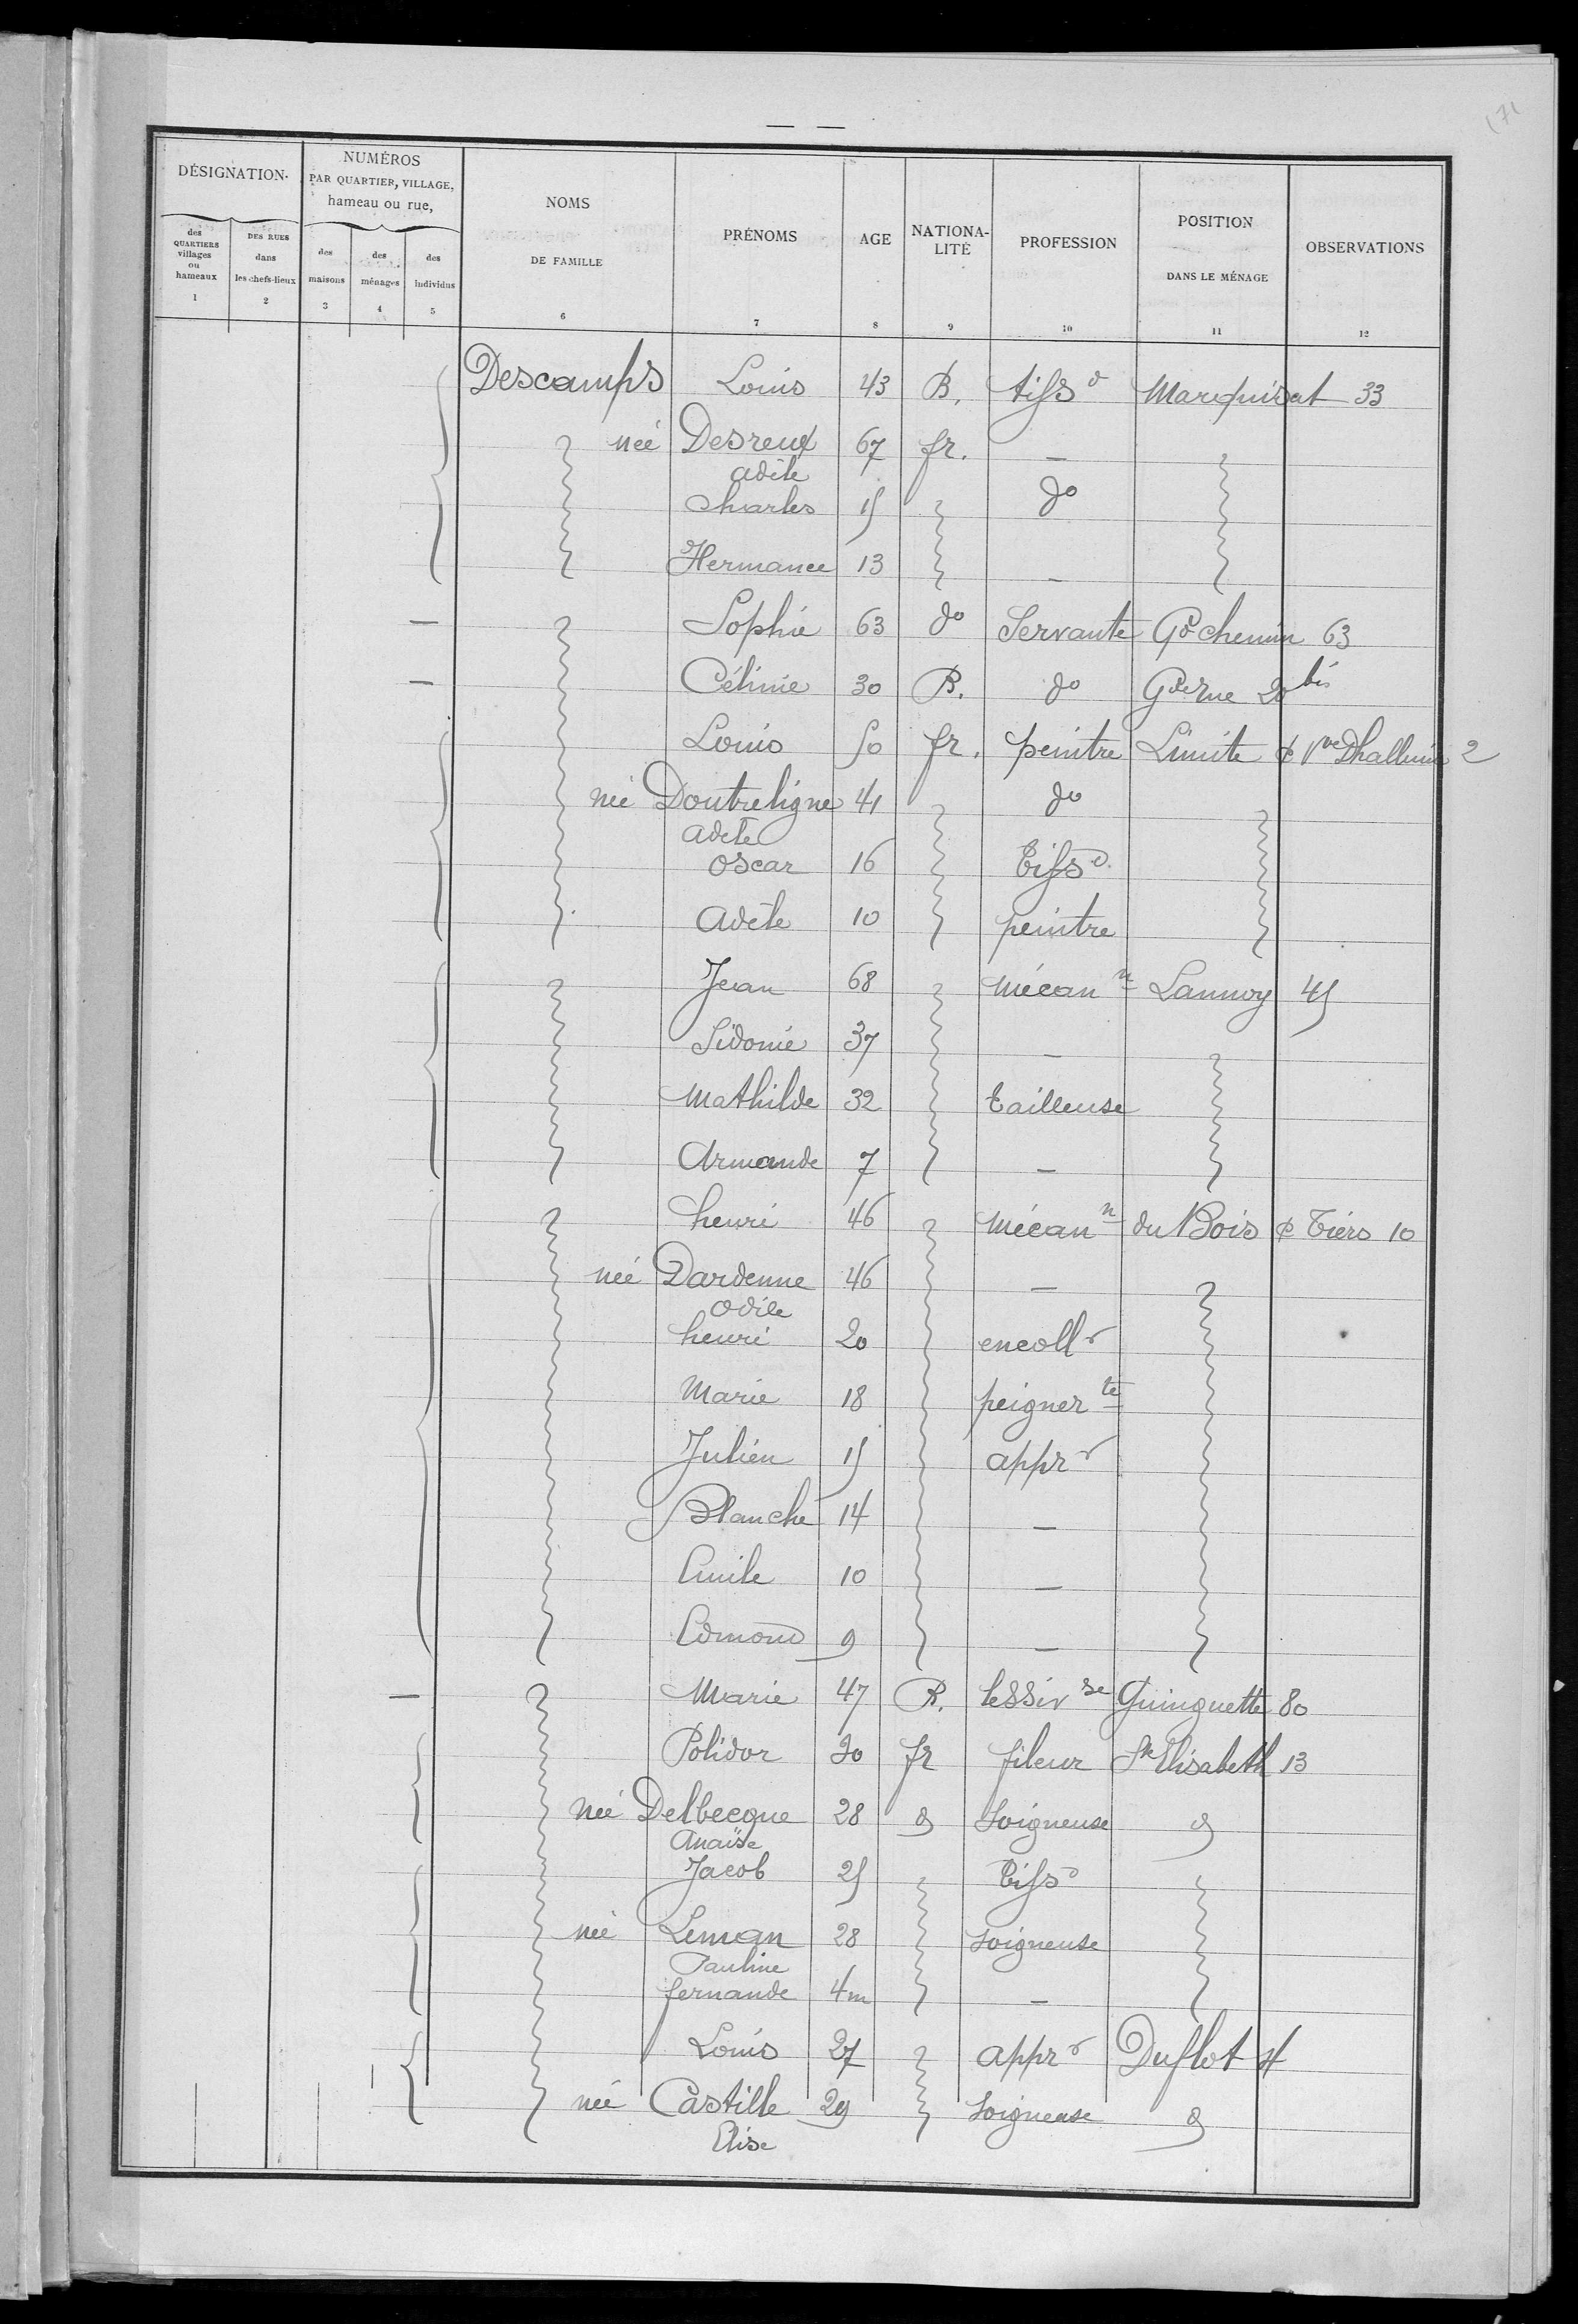 171
DÉSIGNATION
NUMÉROS
PAR QUARTIER, VILLAGE,
hameau ou rue,
NOMS
DE FAMILLE
PRÉNOMS
AGE
NATIONA-
LITÉ
PROFESSION
POSITION
DANS LE MÉNAGE
OBSERVATIONS
des
QUARTIERS
villages
ou
hameaux
DES RUES
dans
les chefs-lieux
des
maisons
des
ménages
des
individus
1 2 3 4 5 6 7 8 9 10 11 12
Descamps Louis 43 B. tiss d Marquisat 33
née Desreux 67 fr. —
adèle
Charles 15 do
Hermance 13 —
— Sophie 63 do Servante Gd chemin 63
— Célinie 30 B. do Gde rue 20 bis
Louis 50 fr. peintre Limite c Vve Dhalluin 2
née Doutreligne 41 do
adèle
oscar 16 tiss d
adèle 10 peintre
Jean 68 mécan n Lannoy 45
Sidonie 37 —
Mathilde 32 tailleuse
Armande 7 —
henri 46 mécan n du Bois c Tiers 10
née Dardenne 46 —
odile
henri 20 encoll r
Marie 18 peigner te
Julien 15 appr r
Blanche 14 —
Emile 10 —
Edmond 9 —
— Marie 47 B. lessiv se Guinguette 80
Polidor 30 fr fileur Ste Elisabeth 13
née Delbecque 28 d soigneuse d
Anaïse
Jacob 25 tiss d
née Leman 28 soigneuse
Pauline
fernande 4m —
Louis 27 appr r Duflot 4
née Castille 29 soigneuse d
Elise